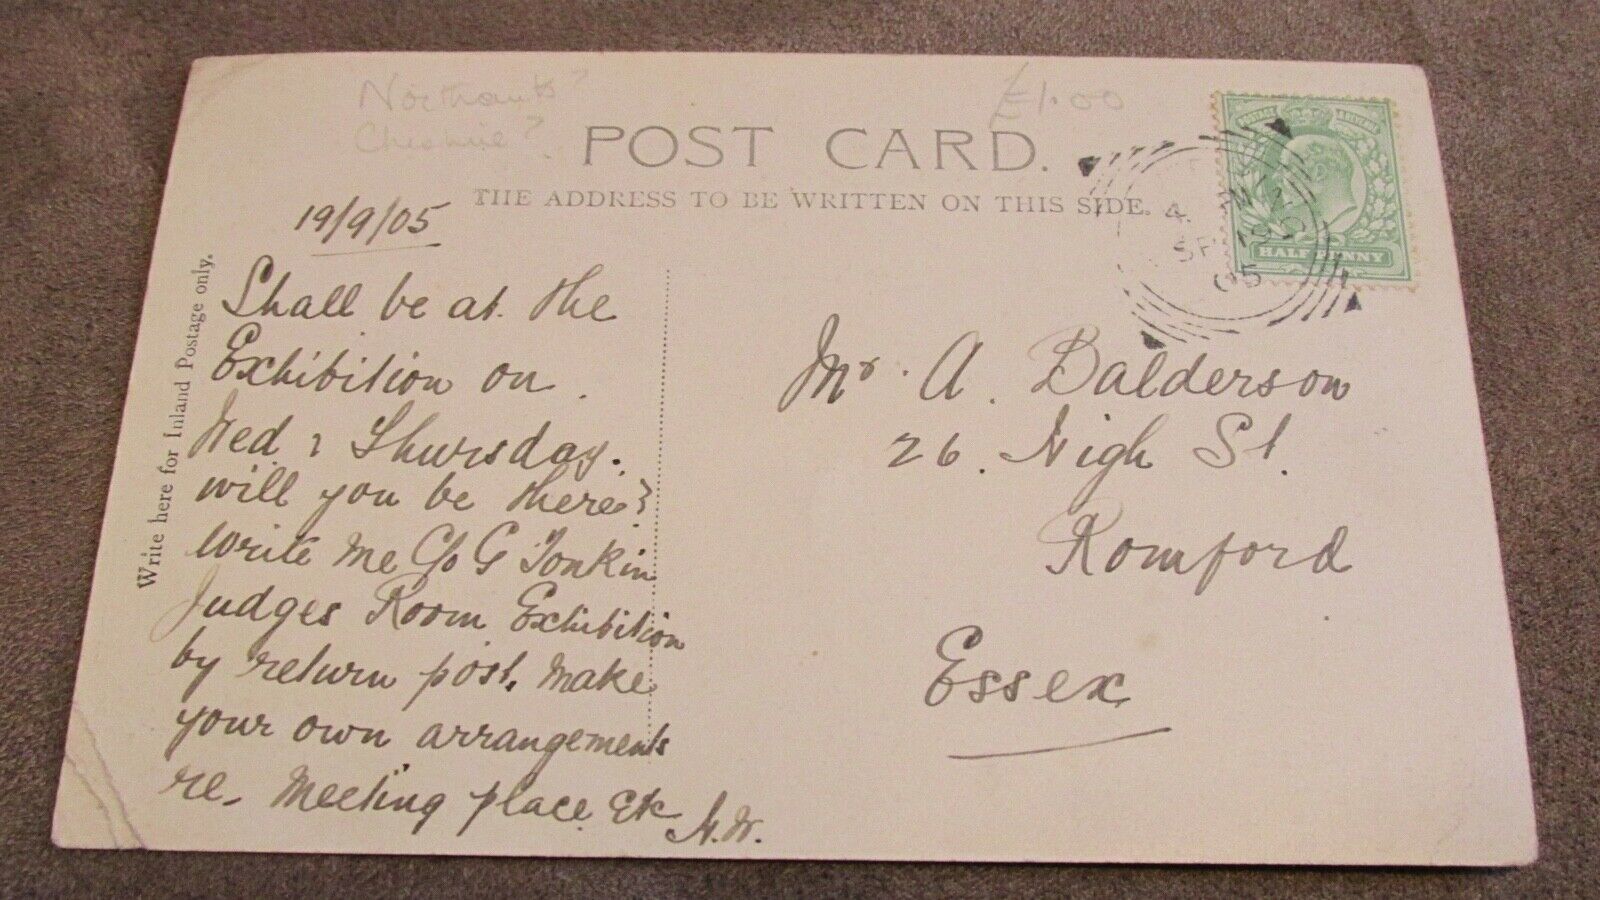 Northants?
Cheshire?
£1.00
POST CARD.
THE ADDRESS TO BE WRITTEN ON THIS SIDE.
POSTAGE & REVENUE
HALF PENNY
4
SP 19
05
Write here for Inland Postage only.
19/9/05
Shall be at the
Exhibition on
Wed & Thursday.
will you be there?
write me C/o G Tonkin
Judges Room Exhibition
by return post. Make
your own arrangements
re- Meeting place Etc
H.W.
Mr. A. Balderson
26. High St.
Romford
Essex